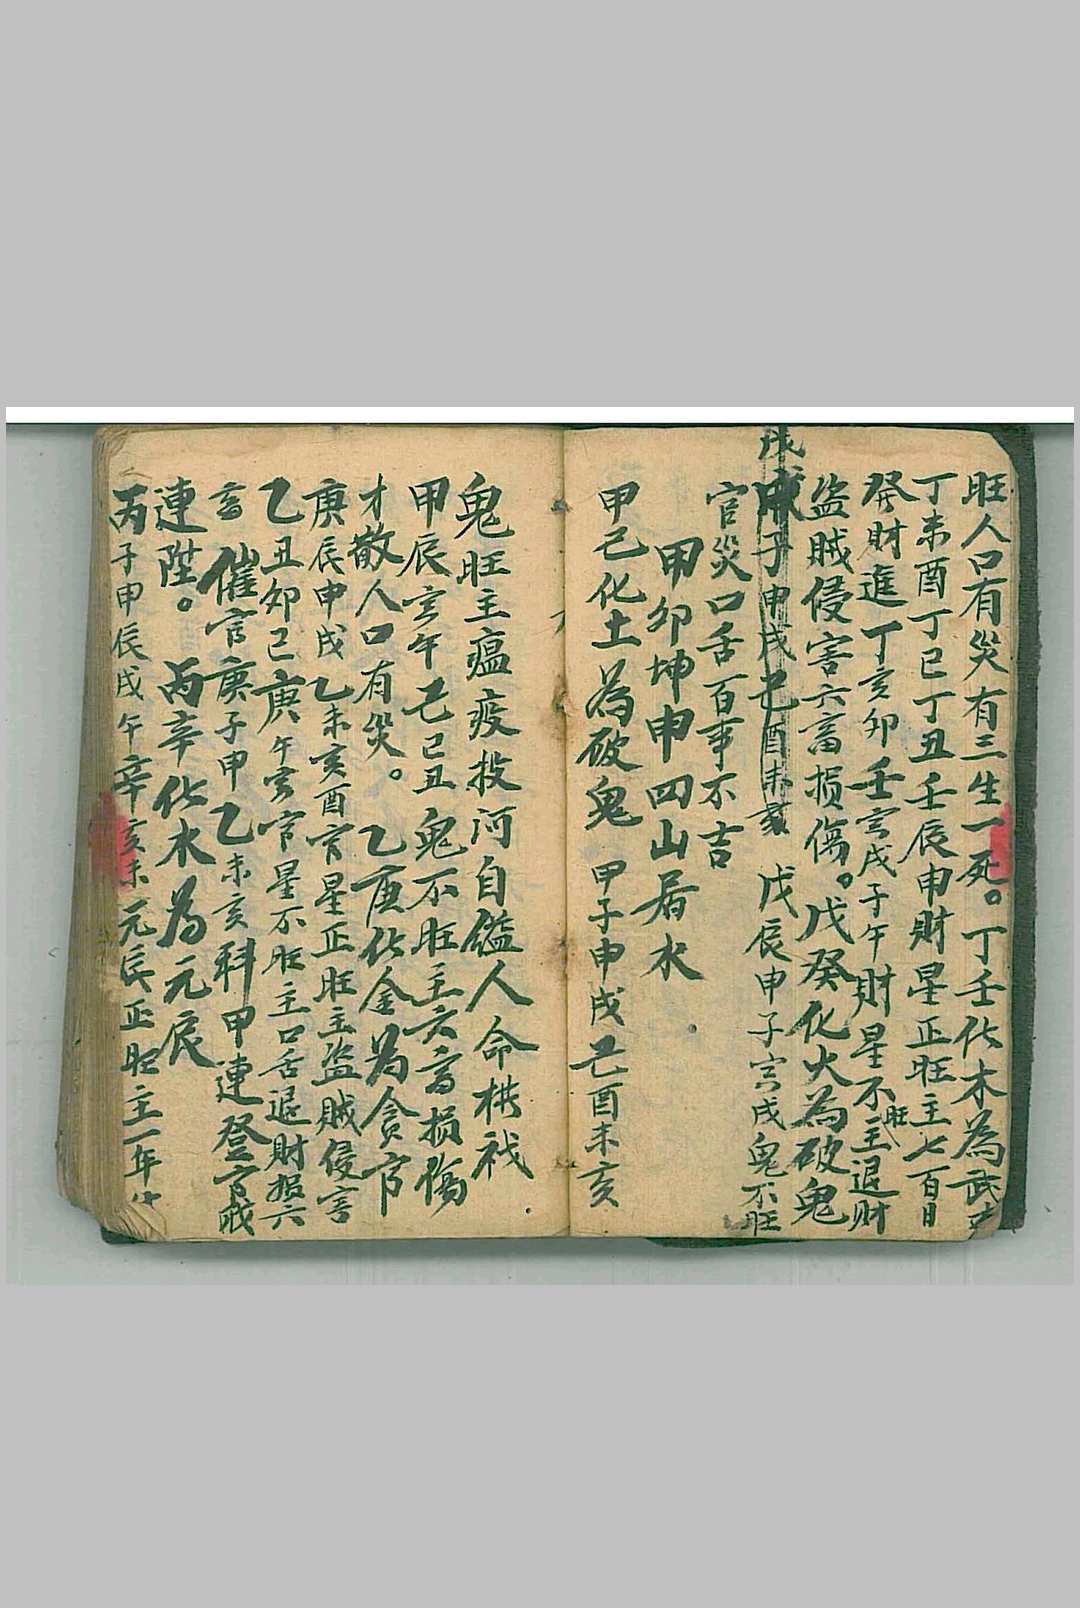 旺人口有災有三生一死。丁壬化木為武
丁未酉丁巳丁丑壬辰申財星正旺主七百日
發財進丁亥卯壬寅戌子午財星不旺主退財
盜賊侵害六畜損傷。戊癸化火為破鬼
戊辰申子寅戌鬼不旺
官災口舌百事不吉
甲卯坤申四山居水
甲己化土為破鬼 甲子申戌己酉未亥
鬼旺主瘟疫投河自縊人命
甲辰寅午己巳丑鬼不旺主六畜損傷
才散人口有災。乙庚化金為貪官
庚辰申戌乙未亥酉官星正旺主盜賊侵害
乙丑卯巳庚午寅官星不旺主口舌退財損六
畜 催官庚子甲乙未亥科甲連登官
連陞。 丙辛化水為元辰
丙子申辰戌午辛亥未元辰正旺主一年